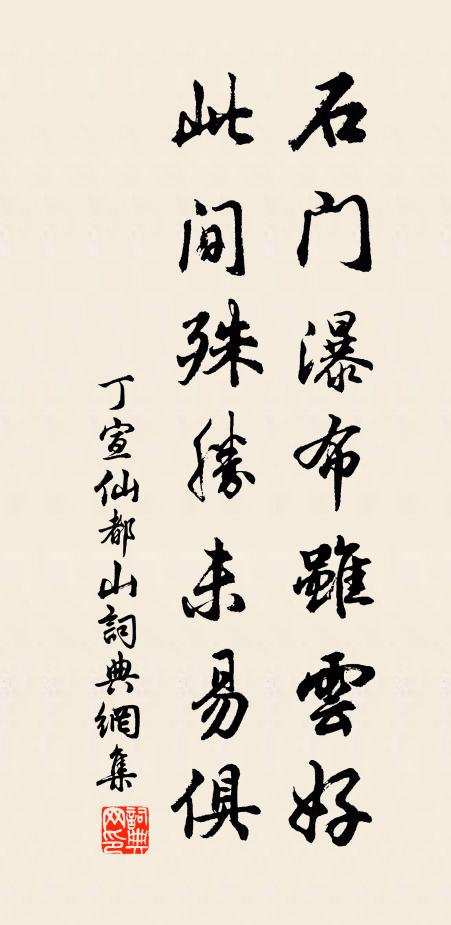 石门瀑布雖雲好
此间殊勝未易俱
丁宣仙都山詞典網集
詞典网印